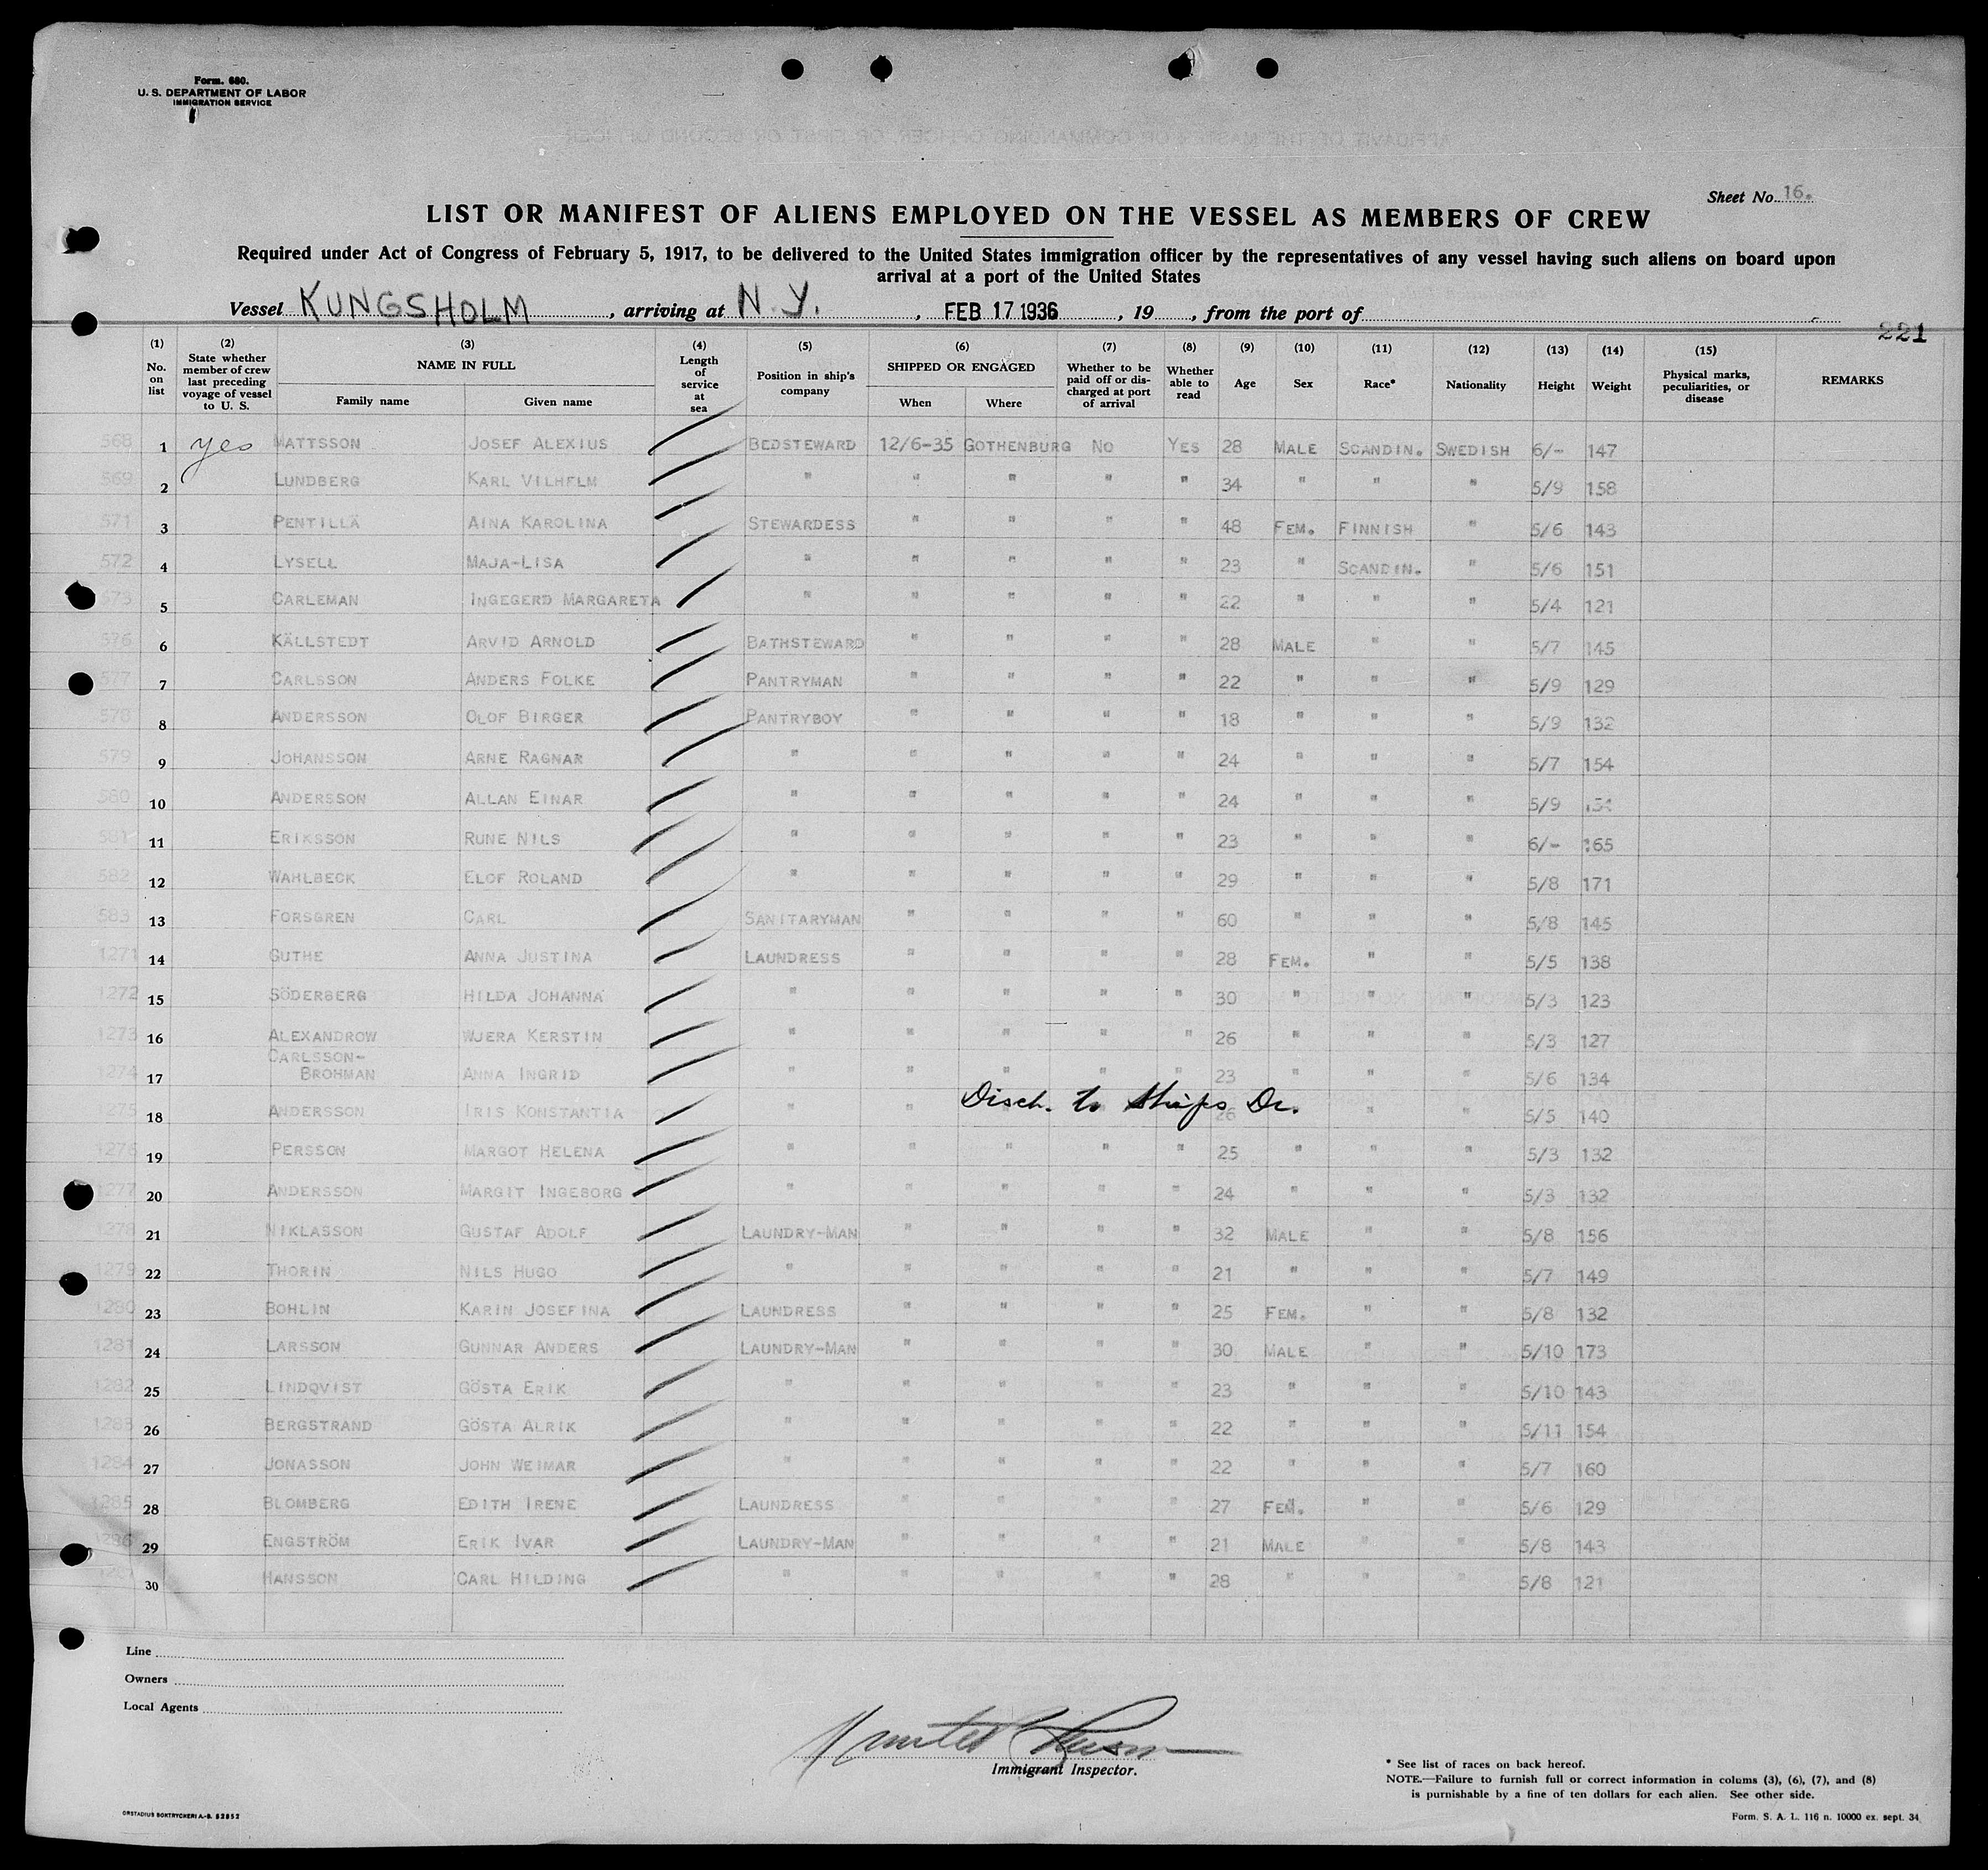 Form. 680.
U. S. DEPARTMENT OF LABOR
IMMIGRATION SERVICE
Sheet No. 16.
LIST OR MANIFEST OF ALIENS EMPLOYED ON THE VESSEL AS MEMBERS OF CREW
Required under Act of Congress of February 5, 1917, to be delivered to the United States immigration officer by the representatives of any vessel having such aliens on board upon
arrival at a port of the United States
Vessel KUNGSHOLM, arriving at N.Y., FEB 17 1936, 19, from the port of
221
(1) No. on list (2) State whether member of crew last preceding voyage of vessel to U. S. (3) NAME IN FULL Family name Given name (4) Length of service at sea (5) Position in ship's company (6) SHIPPED OR ENGAGED When Where (7) Whether to be paid off or discharged at port of arrival (8) Whether able to read (9) Age (10) Sex (11) Race* (12) Nationality (13) Height (14) Weight (15) Physical marks, peculiarities, or disease REMARKS
568 1 yes MATTSSON JOSEF ALEXIUS BEDSTEWARD 12/6-35 GOTHENBURG NO YES 28 MALE SCANDIN. SWEDISH 6/- 147
569 2 LUNDBERG KARL VILHELM " " " " " 34 " " " 5/9 158
571 3 PENTILLÄ AINA KAROLINA STEWARDESS " " " " 48 FEM. FINNISH " 5/6 143
572 4 LYSELL MAJA-LISA " " " " " 23 " SCANDIN. " 5/6 151
573 5 CARLEMAN INGEGERD MARGARETA " " " " " 22 " " " 5/4 121
576 6 KÄLLSTEDT ARVID ARNOLD BATHSTEWARD " " " " 28 MALE " " 5/7 145
577 7 CARLSSON ANDERS FOLKE PANTRYMAN " " " " 22 " " " 5/9 129
578 8 ANDERSSON OLOF BIRGER PANTRYBOY " " " " 18 " " " 5/9 132
579 9 JOHANSSON ARNE RAGNAR " " " " " 24 " " " 5/7 154
580 10 ANDERSSON ALLAN EINAR " " " " " 24 " " " 5/9
581 11 ERIKSSON RUNE NILS " " " " " 23 " " " 6/- 165
582 12 WAHLBECK ELOF ROLAND " " " " " 29 " " " 5/8 171
583 13 FORSGREN CARL SANITARYMAN " " " " 60 " " " 5/8 145
1271 14 GUTHE ANNA JUSTINA LAUNDRESS " " " " 28 FEM. " " 5/5 138
1272 15 SÖDERBERG HILDA JOHANNA " " " " " 30 " " " 5/3 123
1273 16 ALEXANDROW WJERA KERSTIN " " " " " 26 " " " 5/3 127
1274 17 CARLSSON-BROHMAN ANNA INGRID " " " " " 23 " " " 5/6 134
1275 18 ANDERSSON IRIS KONSTANTIA " " Disch. to Ships Dr. 26 " " 5/5 140
1276 19 PERSSON MARGOT HELENA " " " " " 25 " " " 5/3 132
1277 20 ANDERSSON MARGIT INGEBORG " " " " " 24 " " " 5/3 132
1278 21 NIKLASSON GUSTAF ADOLF LAUNDRY-MAN " " " " 32 MALE " " 5/8 156
1279 22 THORIN NILS HUGO " " " " " 21 " " " 5/7 149
1280 23 BOHLIN KARIN JOSEFINA LAUNDRESS " " " " 25 FEM. " " 5/8 132
1281 24 LARSSON GUNNAR ANDERS LAUNDRY-MAN " " " " 30 MALE " " 5/10 173
1282 25 LINDQVIST GÖSTA ERIK " " " " " 23 " " " 5/10 143
1283 26 BERGSTRAND GÖSTA ALRIK " " " " " 22 " " " 5/11 154
1284 27 JONASSON JOHN WEIMAR " " " " " 22 " " " 5/7 160
1285 28 BLOMBERG EDITH IRENE LAUNDRESS " " " " 27 FEM. " " 5/6 129
1286 29 ENGSTRÖM ERIK IVAR LAUNDRY-MAN " " " " 21 MALE " " 5/8 143
30 HANSSON CARL HILDING " " " " " 28 " " " 5/8 121
Line
Owners
Local Agents
Immigrant Inspector.
* See list of races on back hereof.
NOTE.—Failure to furnish full or correct information in colums (3), (6), (7), and (8)
is punishable by a fine of ten dollars for each alien. See other side.
ORSTADIUS BOKTRYCKERI A.-B. 52852
Form. S. A. L. 116 n. 10000 ex. sept. 34